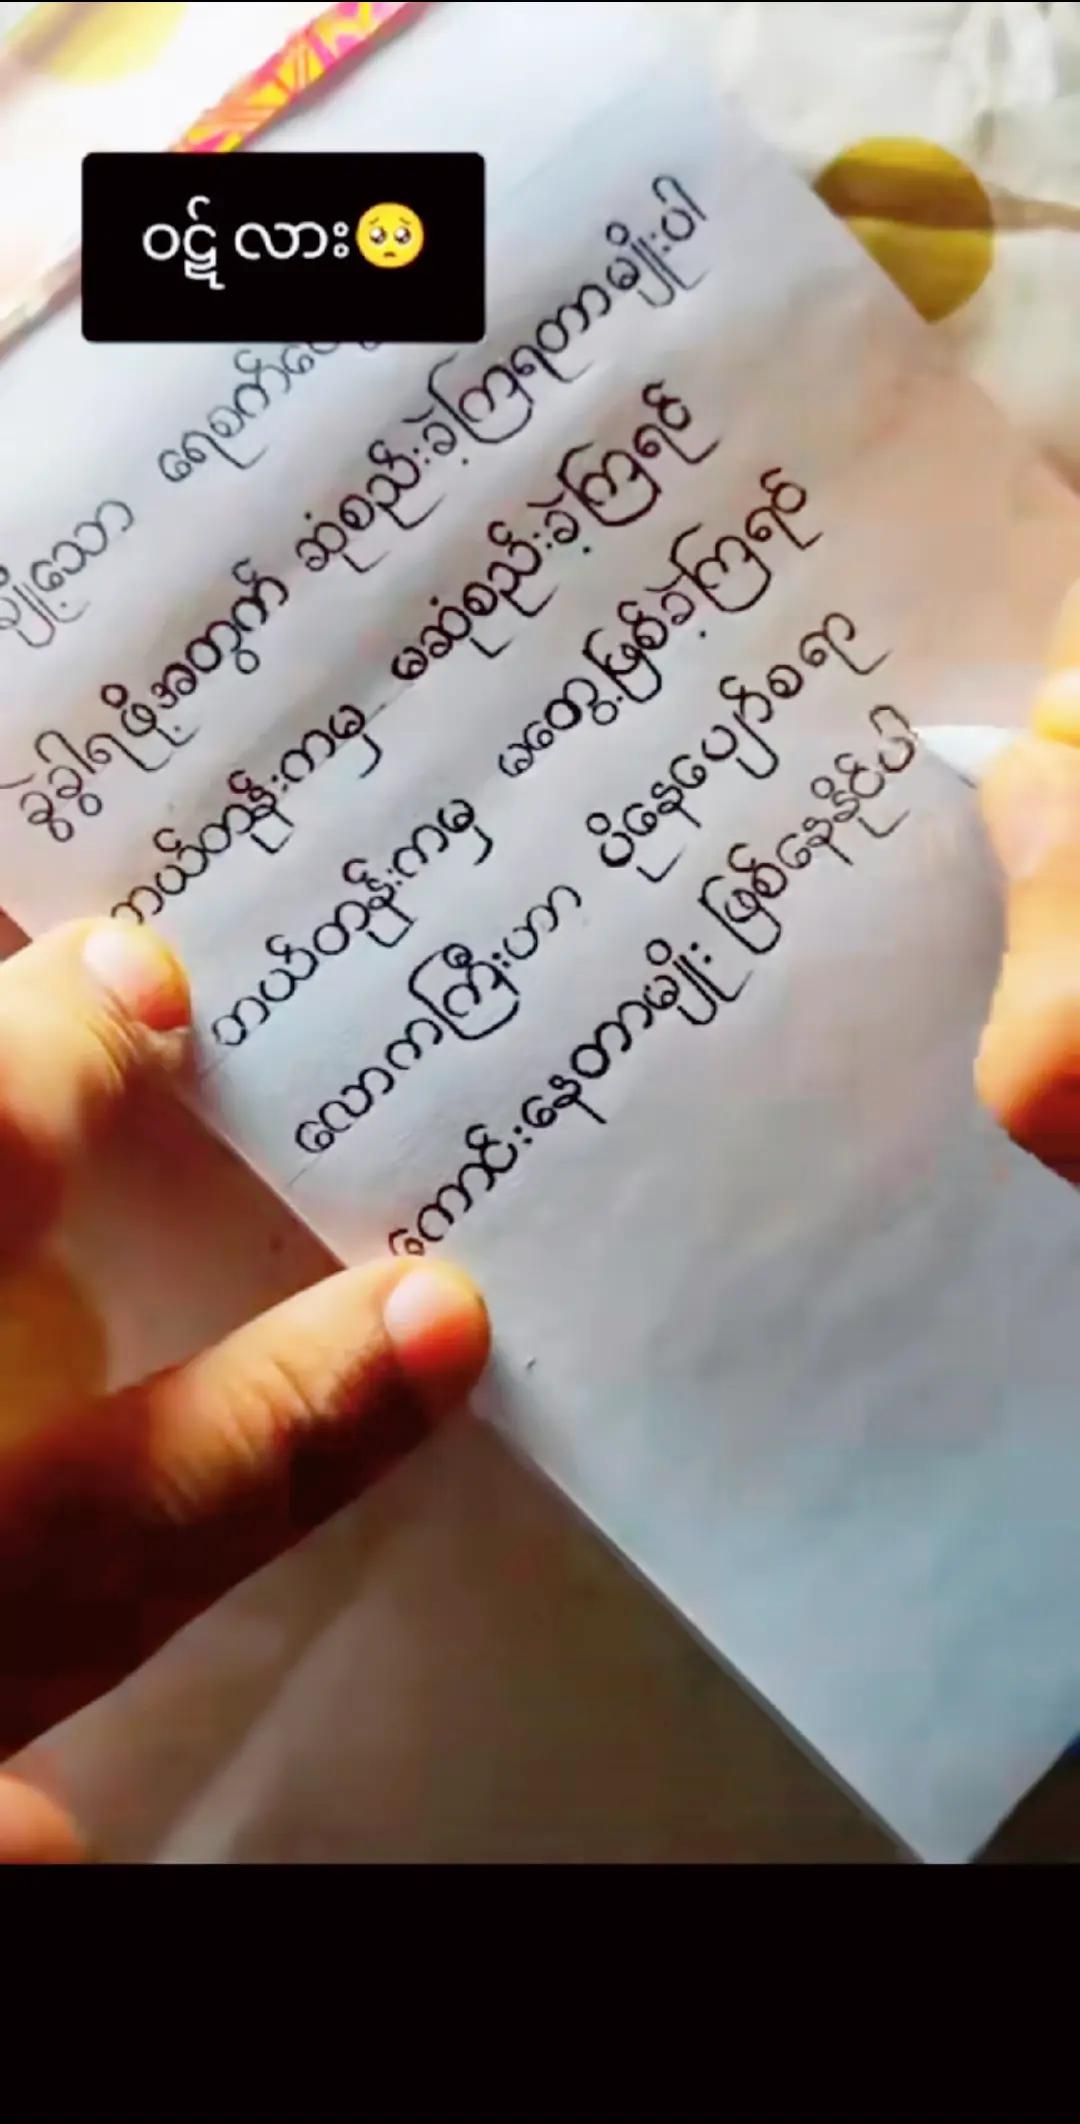 ဝဋ် လား🥺
ချို့သော ရေစက်တွေ
ခွဲခွါရဖို့အတွက် ဆုံစည်းခဲ့ကြရတာမျိုးပါ
ဘယ်တုန်းကမှ မဆုံစည်းခဲ့ကြရင်
ဘယ်တုန်းကမှ မတွေ့ဖြစ်ခဲ့ကြရင်
လောကကြီးဟာ ပိုနေပျော်စရာ
ကောင်းနေတာမျိုး ဖြစ်နေနိုင်ပါ